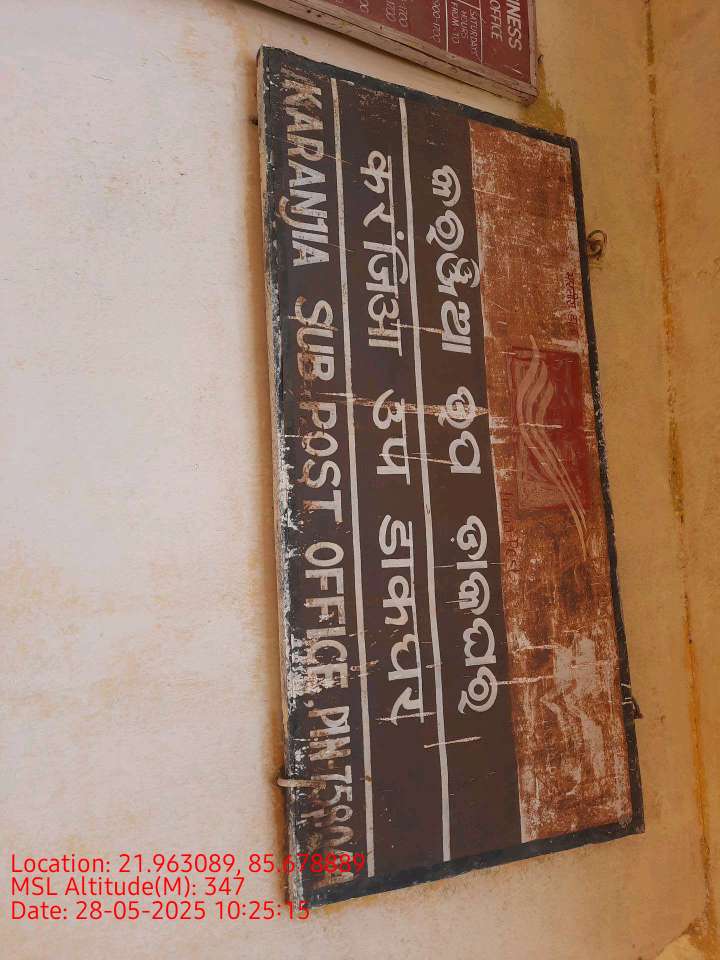 OFFICE
SATURDAYS
HOURS
FROM TO
India Post
କରଞ୍ଜିଆ ଉପ ଡାକଘର
करंजिआ उप डाकघर
KARANJIA SUB POST OFFICE, PIN-
Location: 21.963089, 85.678889
MSL Altitude(M): 347
Date: 28-05-2025 10:25:15